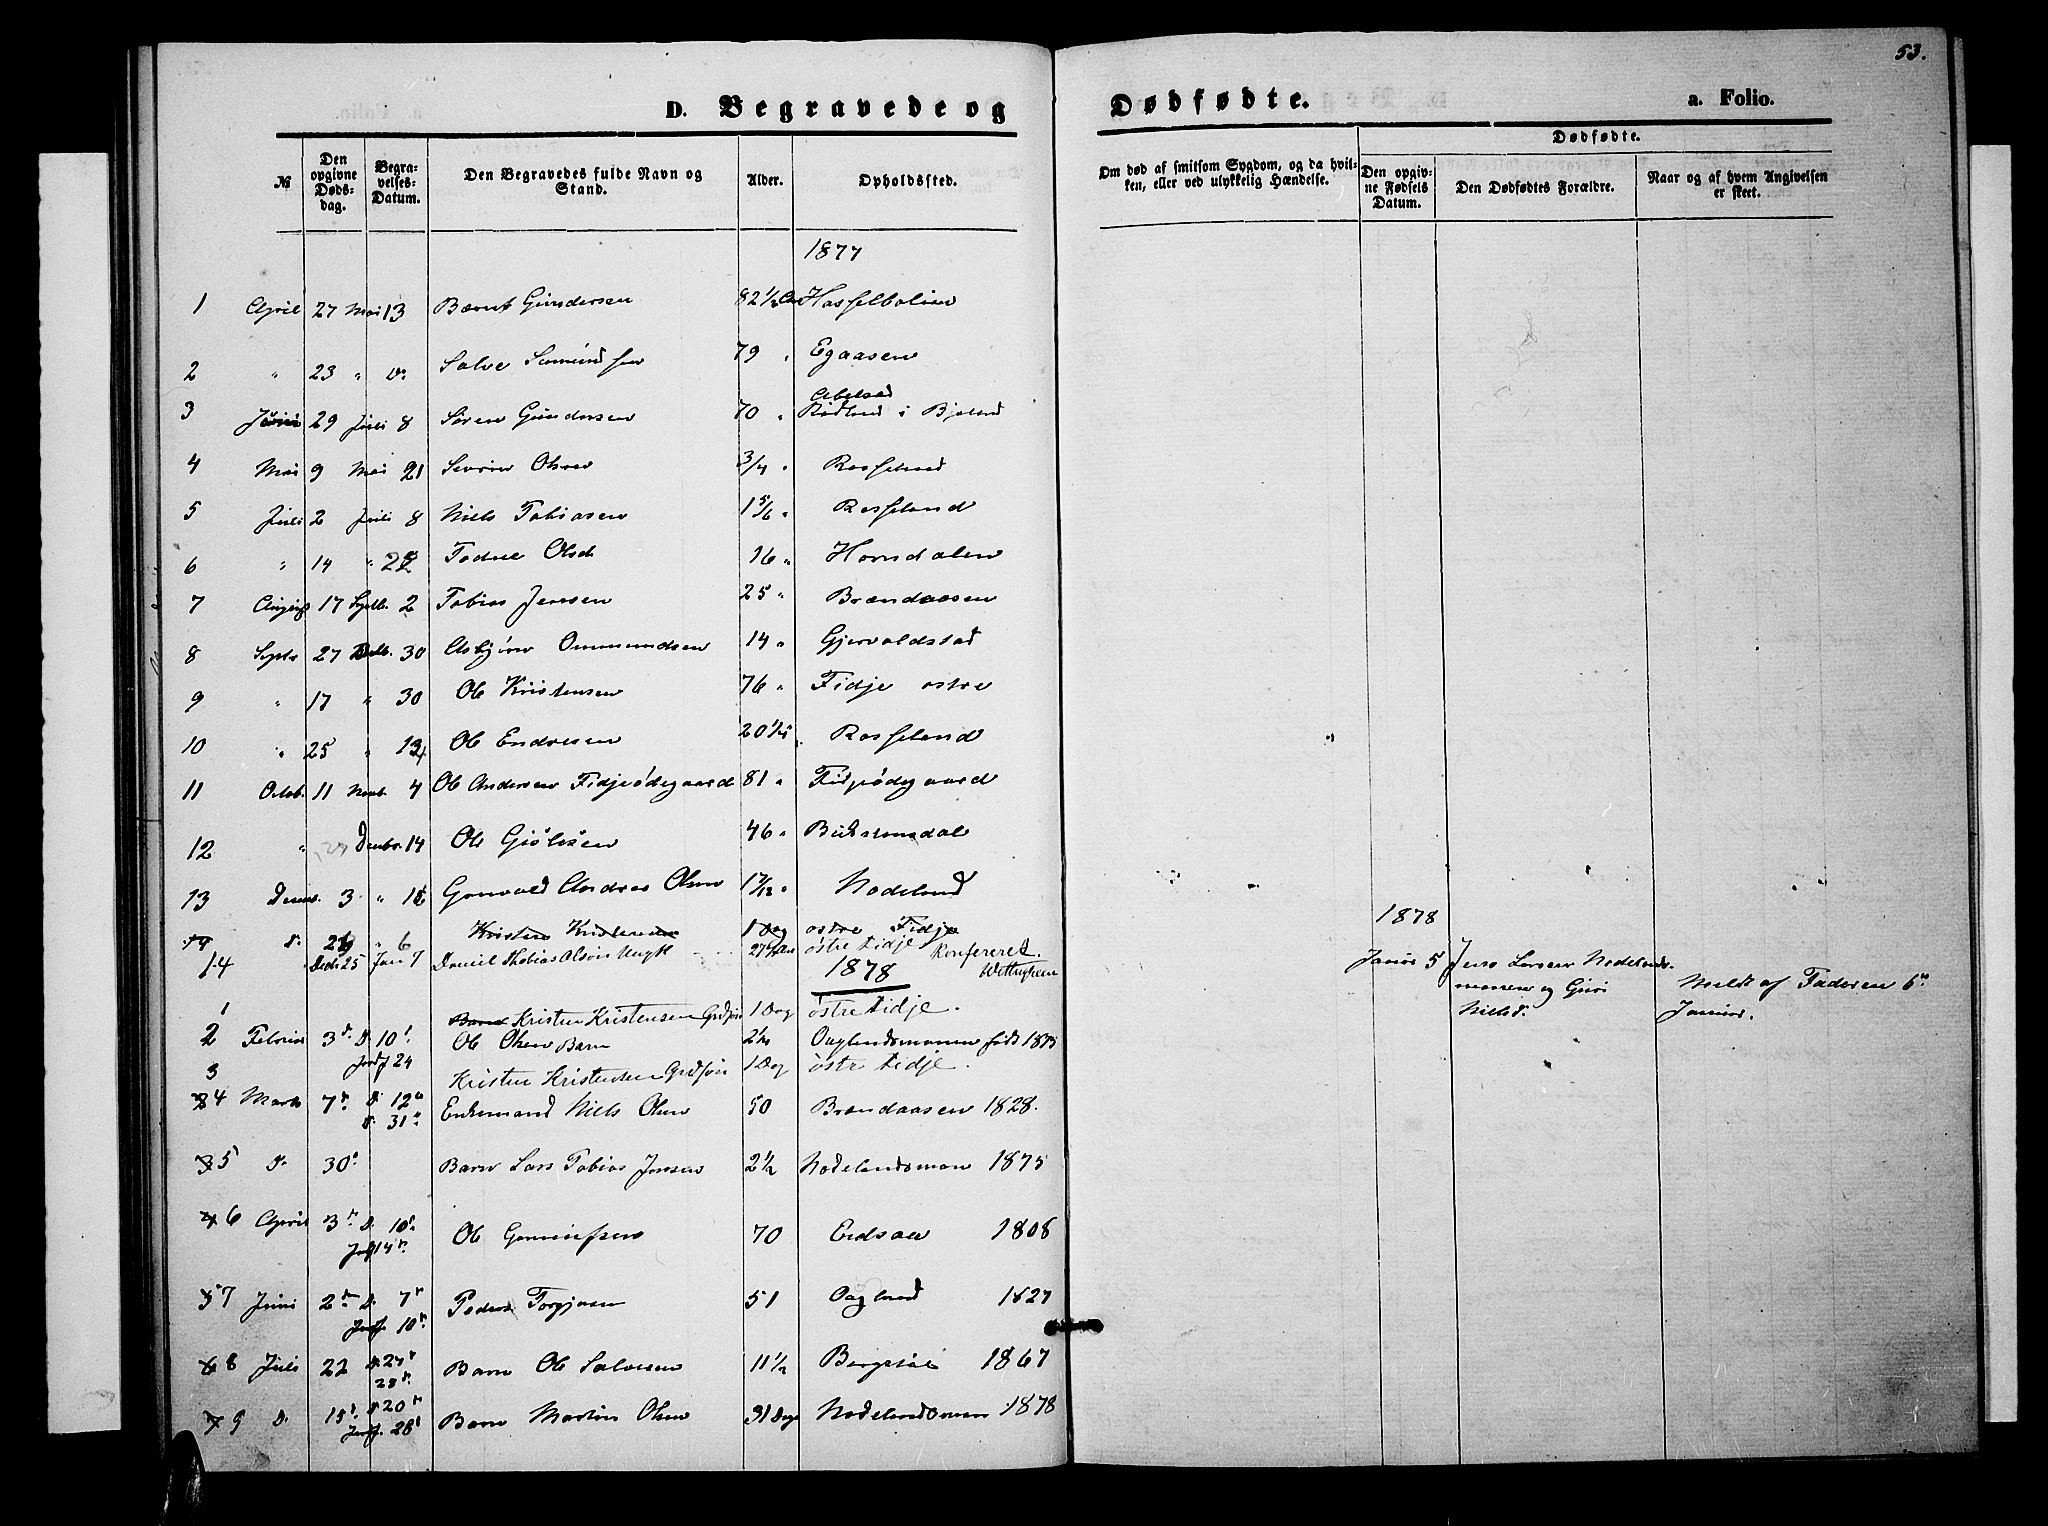 53.
D. Begravede og Dødfødte. a. Folio.
№ Den opgivne Døds-dag. Begra-velses-Datum. Den Begravedes fulde Navn og Stand. Alder. Opholdssted.
Om død af smitsom Sygdom, og da hvil-ken, eller ved ulykkelig Hændelse. Dødfødte. Den opgiv-ne Fødsels Datum. Den Dødfødtes Forældre. Naar og af hvem Angivelsen er skeet.
1877
1 April 27 Mai 13 Bærnt Gundersen 82 1/2
2 " 23 " D. Salve 79 " Egaasen
3 Juni 29 Juli 8 Søren Gundersen 70 " i Bjelland
4 Mai 9 Mai 21 Olsen 3/4 " Rosseland
5 Juli 2 Juli 8 Niels Tobiasen 1 5/6 " Rosseland
6 " 14 " 22 Todne Olsd 16 " Horndalen
7 August 17 Septb. 2 Tobias Jensen 25 " Brændaasen
8 Septb 27 30 Asbjørn Ommundsen 14 " Gjervoldstad
9 " 17 " 30 Ole Kristensen 76 " Fidje østre
10 " 25 " Ole Endresen 20 Rosseland
11 Octob. 11 Novb. 4 Ole Andersen Fidjeødegaard 81 " Fidjeødegaard
12 " Decbr. 14 Ole 46 "
13 Decmb. 3 " Gunvald Andreas Olsen " Nodeland
14 D. " 6 Kristen Kristensen 1 Dag østre Fidje
14 Decbr 25 Jan 7 Daniel Thobias Olsen østre Fidje Konfereret.
1878
1 Barn Kristen Kristensen 1 Dag østre Fidje.
2 Februar 3 D. 10 Ole Olsen Barn 2 1/2 Ouglandsmonen født 1875
3 Jordf 24 Kristen Kristensen 1 Dag østre Fidje.
4 Marts 7 D. 12 Enkemand Niels Olsen 50 Brændaasen 1828.
D. 31
5 D. 30 Barn Lars Tobias Jensen 2 1/2 Nodelandsmon 1875
6 April 3 D. 10 Ole 70 1808
Jordf 14
7 Juni 2 D. 7 Peder Torgjusen 51 Ougland 1827
Jordf. 10
8 Juli 22 D. 27 Barn Ole Salvesen 11 1/2 1867
28
9 D. 15 D. 20 Barn Martin Olsen 31 Dage Nodelandsmon 1878
Jordf. 28
1878
Januar 5 Jens Larsen Nodelands-
monen og Guro
Nielsd.
Meldt af Faderen 6
Januar.